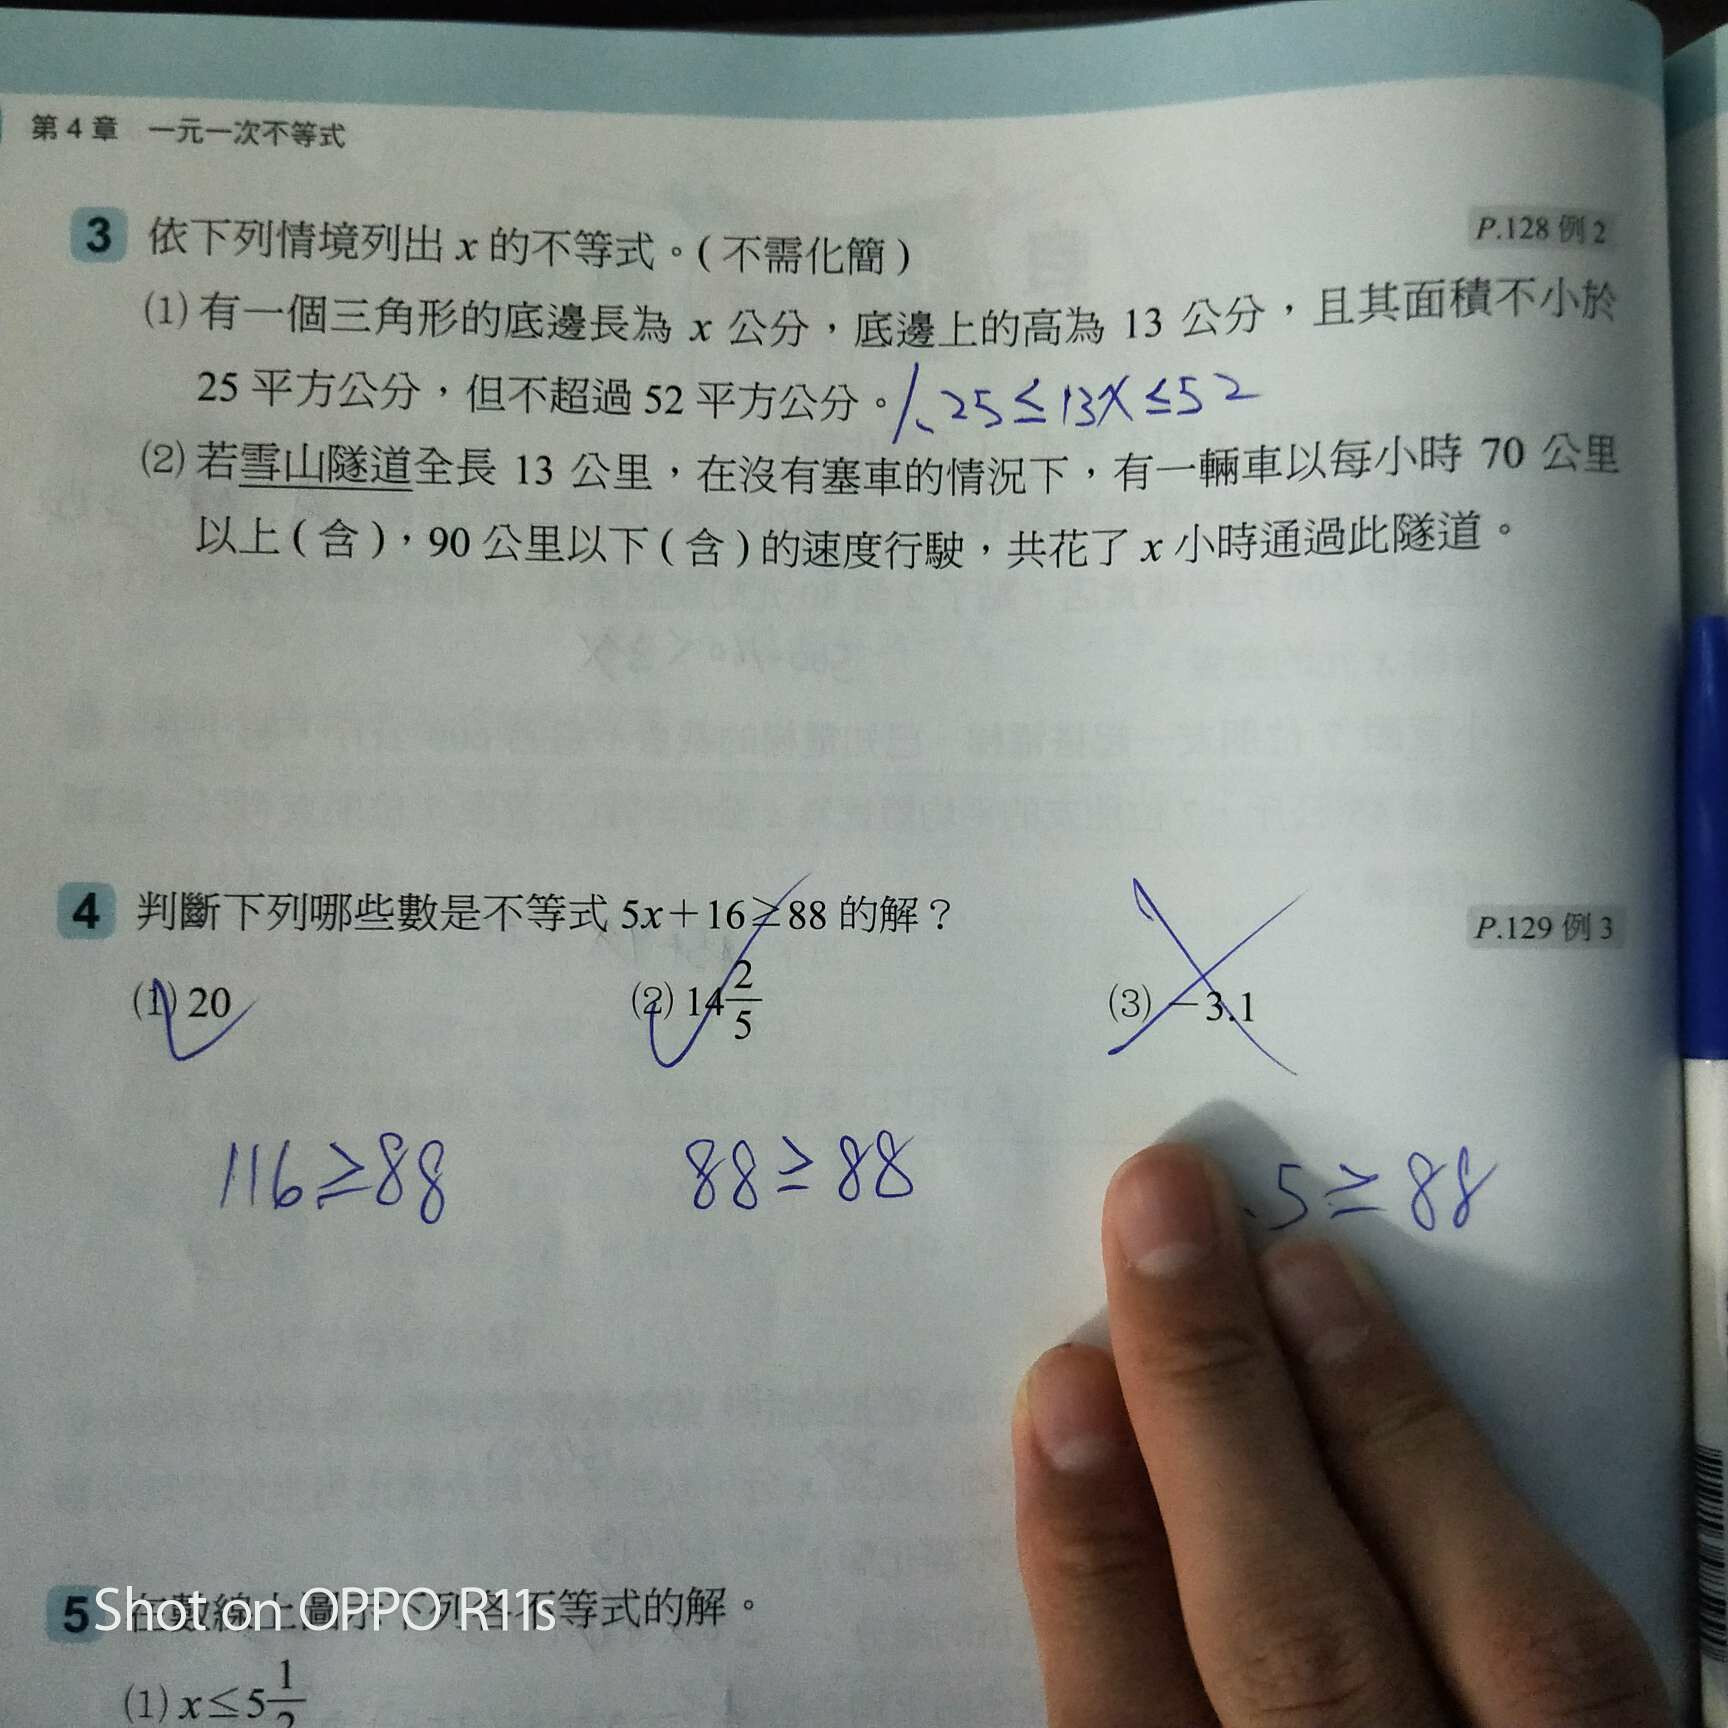 第4章 一元一次不等式
3 依下列情境列出 x 的不等式。(不需化簡) P.128 例2
(1) 有一個三角形的底邊長為 x 公分，底邊上的高為 13 公分，且其面積不小於
25 平方公分，但不超過 52 平方公分。 1、25≤13x≤52
(2) 若雪山隧道全長 13 公里，在沒有塞車的情況下，有一輛車以每小時 70 公里
以上(含)，90 公里以下(含)的速度行駛，共花了 x 小時通過此隧道。
4 判斷下列哪些數是不等式 5x+16≥88 的解？ P.129 例3
(1) 20 (2) 14 2/5 (3) -3.1
116≥88 88≥88 .5≥88
5 在數線上圖示下列各不等式的解。
Shot on OPPO R11s
(1) x≤5 1/2